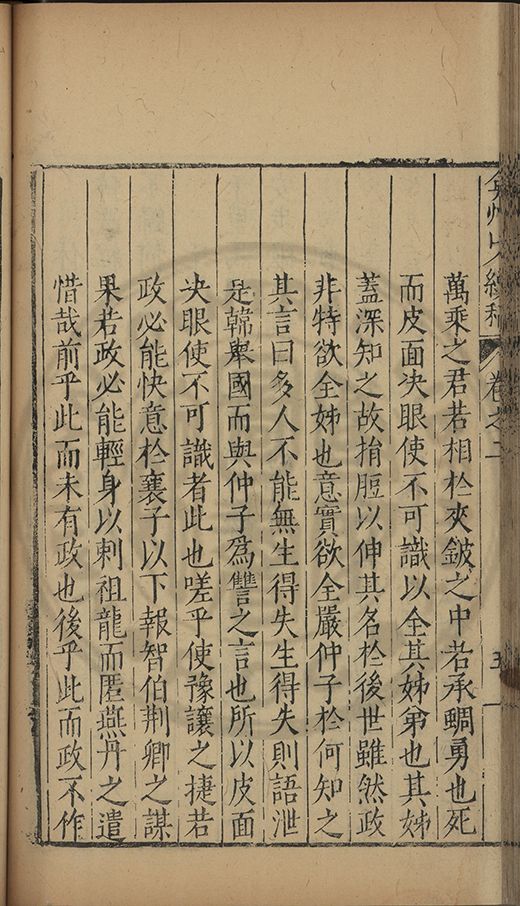 弇州山人續稿 卷之二 五
萬乘之君若相於夾鈹之中若承蜩勇也死
而皮面決眼使不可識以全其姊弟也其姊
蓋深知之故捐脰以伸其名於後世雖然政
非特欲全姊也意實欲全嚴仲子於何知之
其言曰多人不能無生得失生得失則語泄
是韓舉國而與仲子爲讐之言也所以皮面
决眼使不可識者此也嗟乎使豫讓之捷若
政必能快意於襄子以下報智伯荆卿之謀
果若政必能輕身以刺祖龍而匿燕丹之遣
惜哉前乎此而未有政也後乎此而政不作